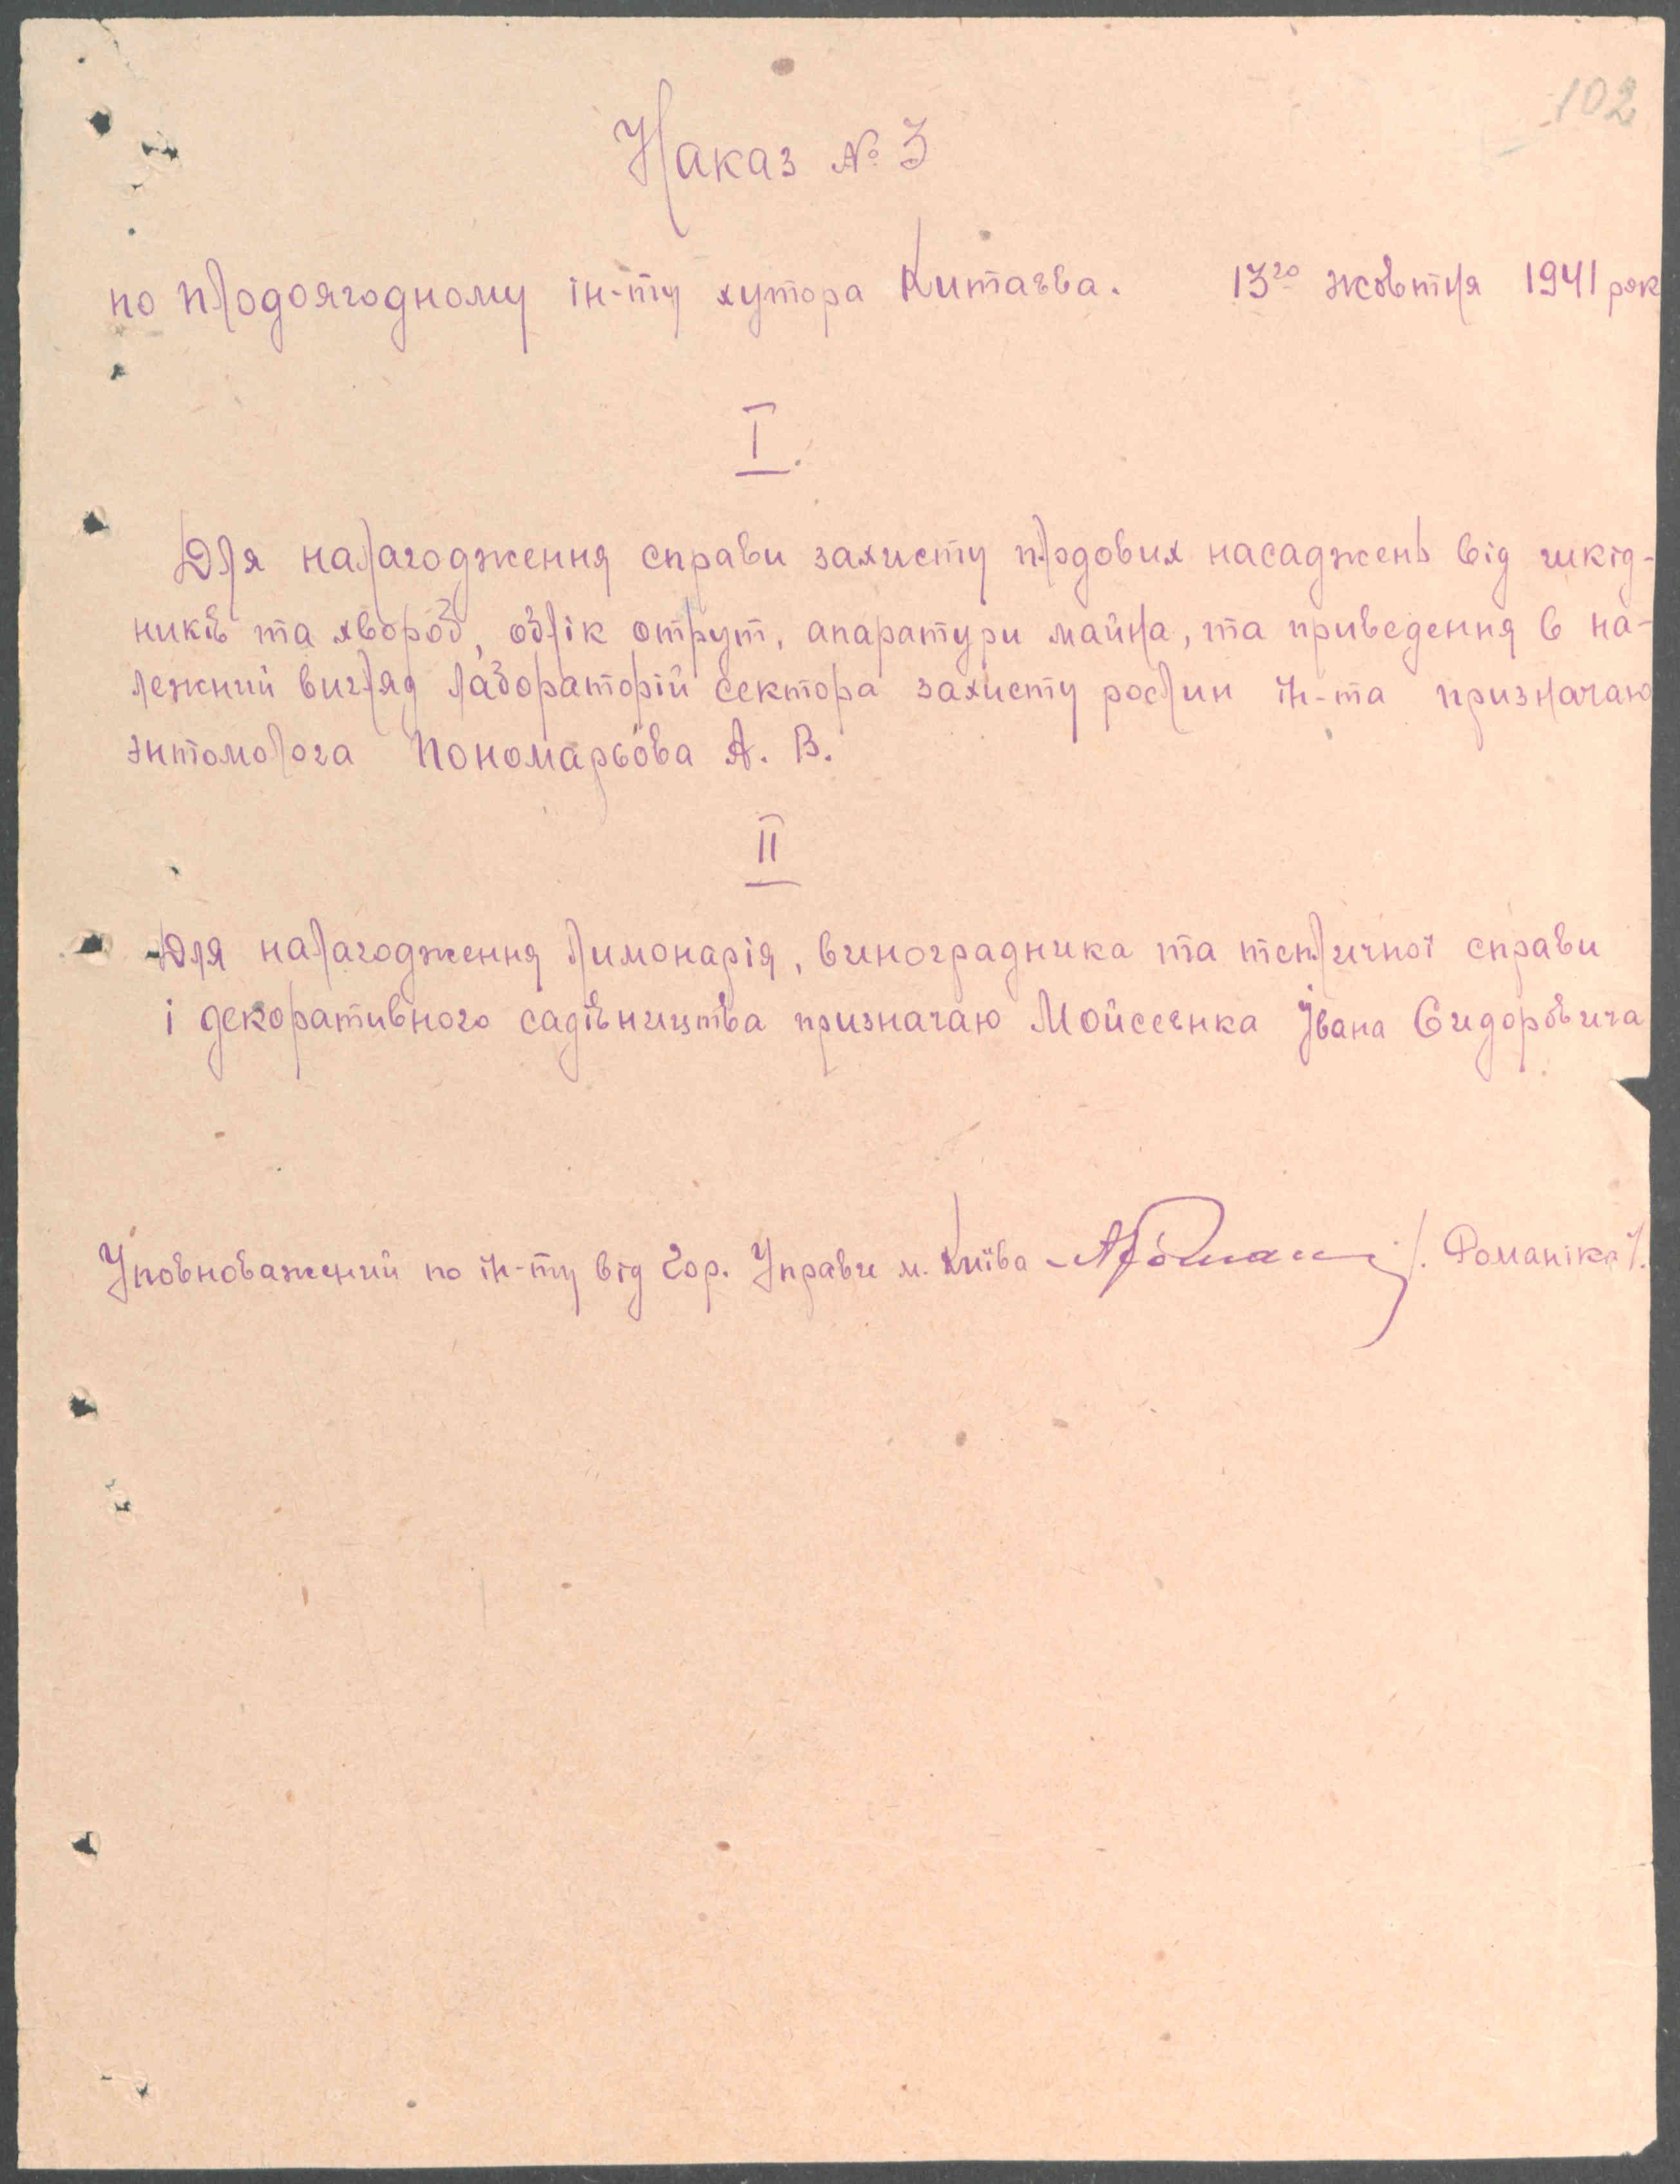 102
Наказ № 3
по плодоягодному ін-ту хутора Китаєва. 13го жовтня 1941 рок
I.
Для налагодження справи захисту плодових насаджень від шкід-
ників та хвороб, облік отрут, апаратури майна, та приведення в на-
лежний вигляд лабораторій сектора захисту рослин ін-та призначаю
энтомолога Пономарьова А. В.
II
Для налагодження лимонарія, виноградника та тепличної справи
і декоративного садівництва призначаю Мойсеєнка Івана Сидоровича
Уповноважений по ін-ту від Гор. Управи м. Київа /. Романіка /.